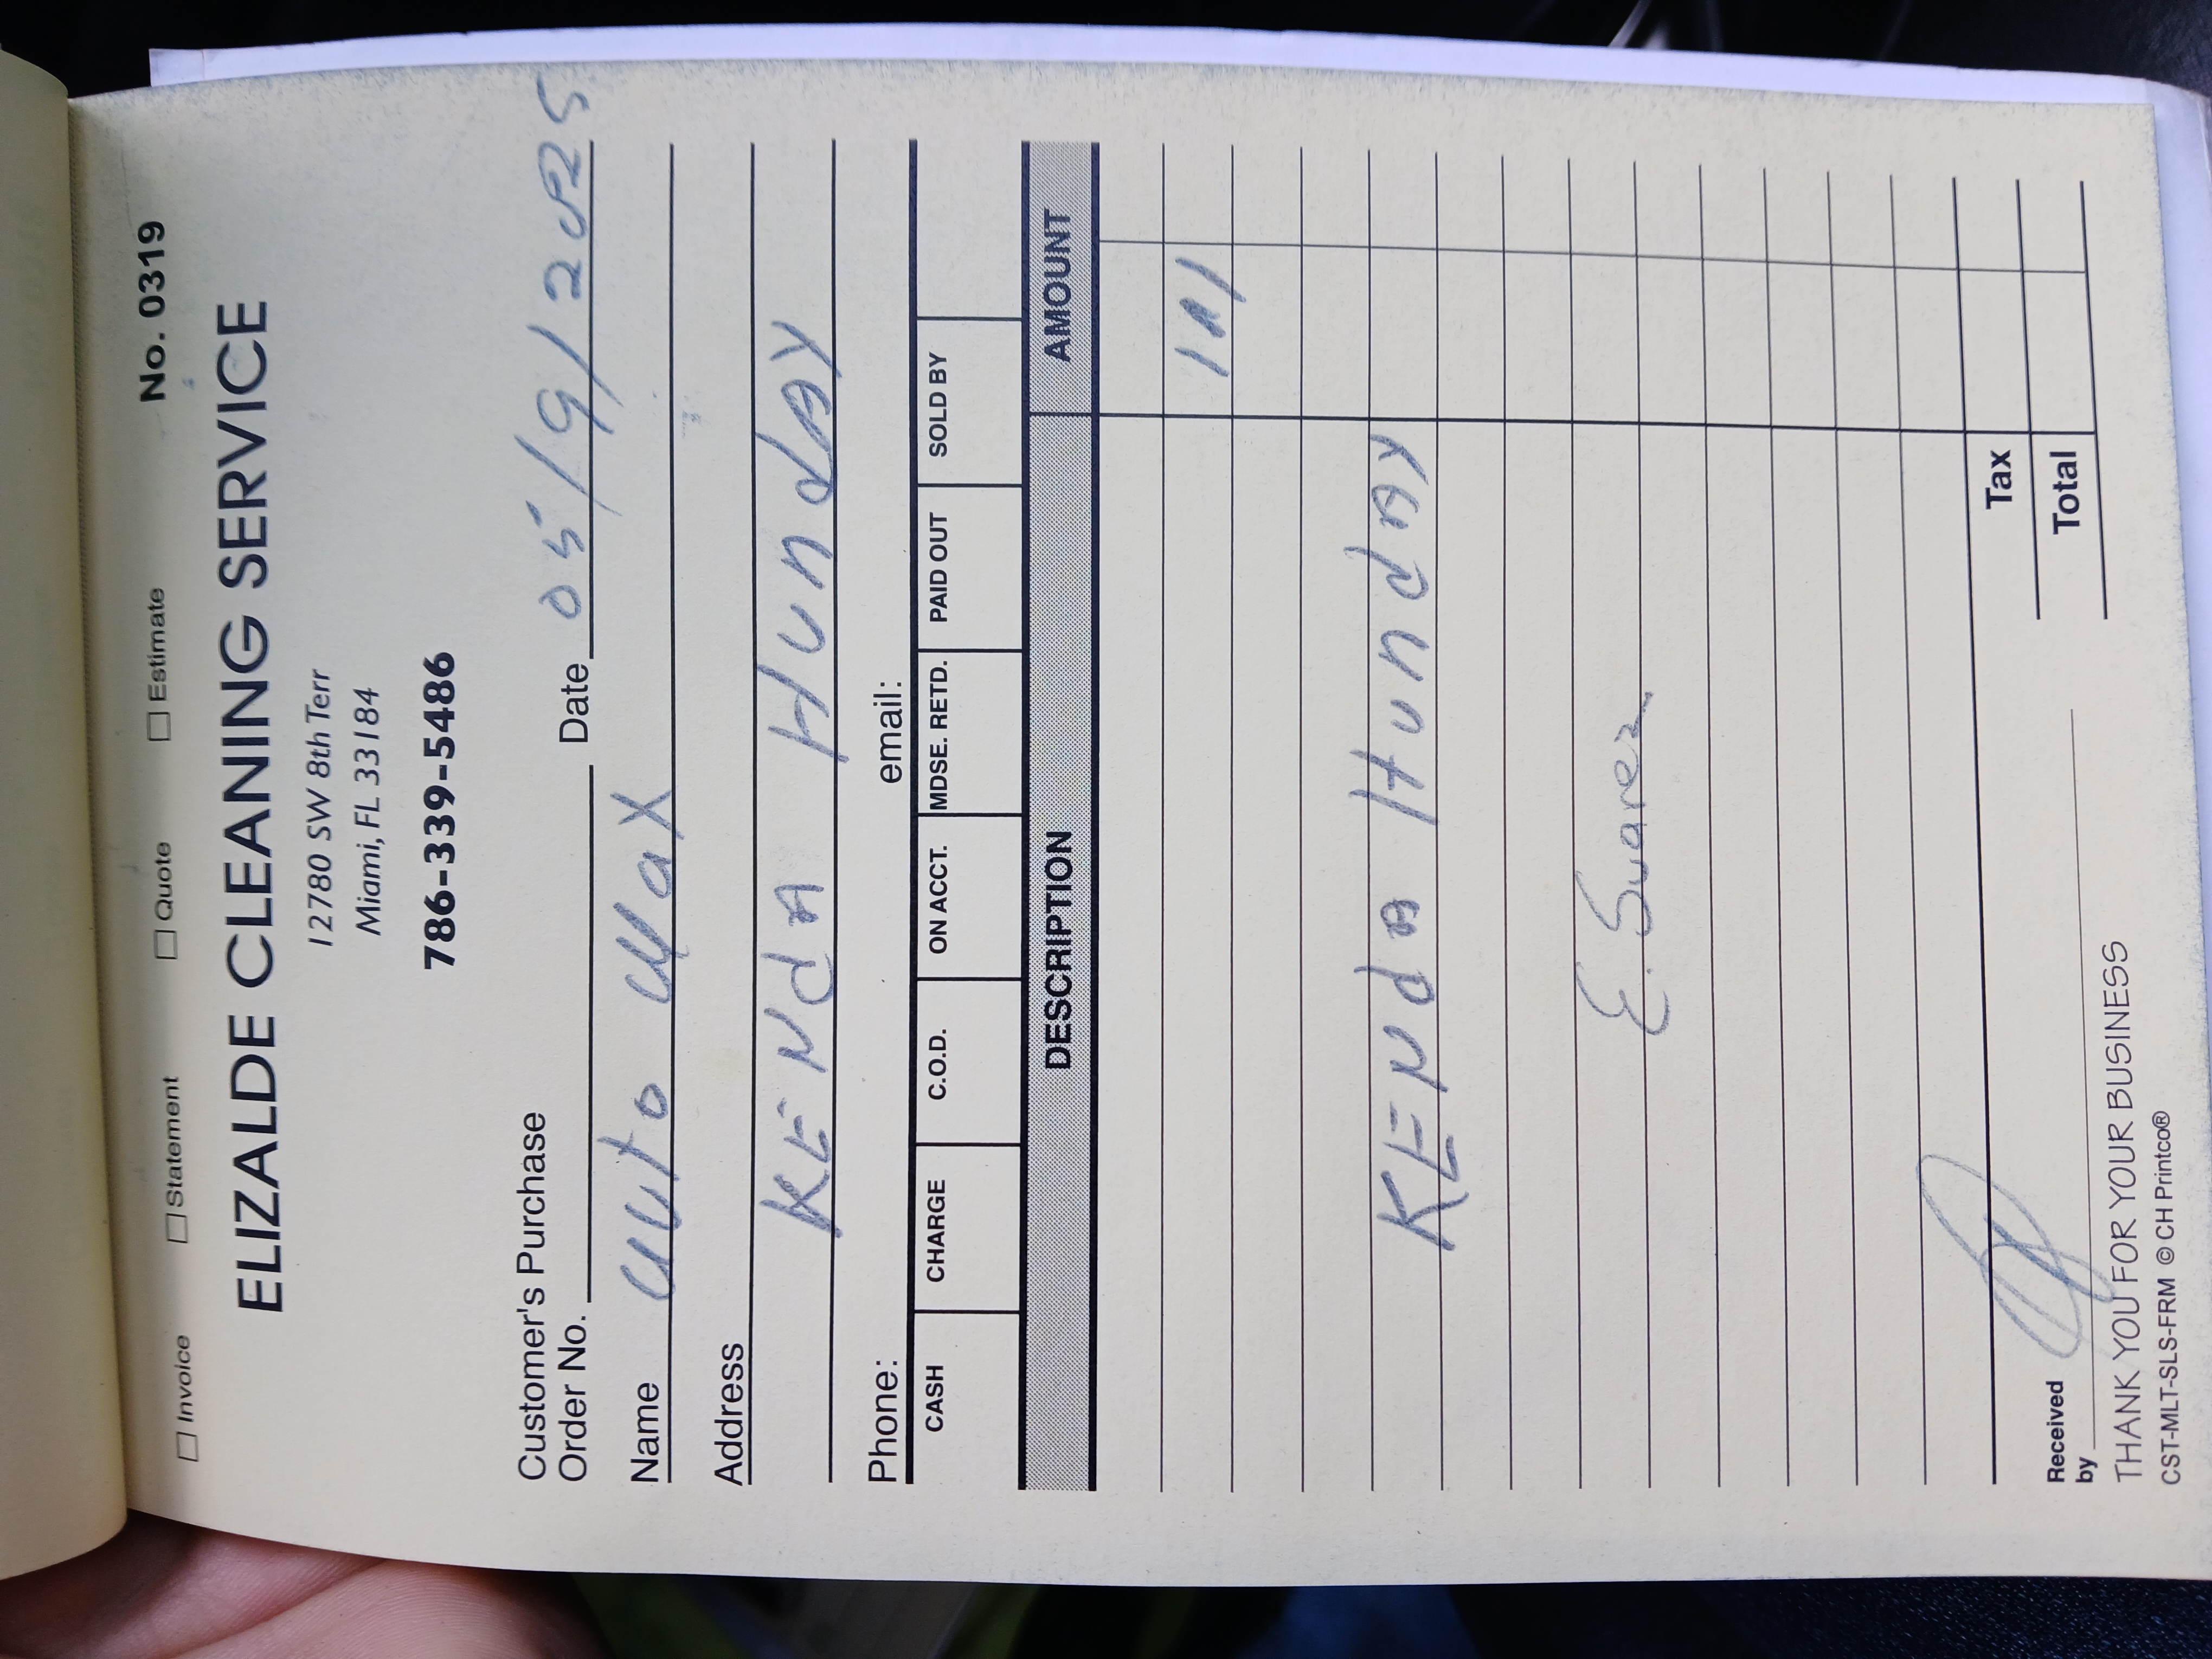 ☐ Invoice ☐ Statement ☐ Quote ☐ Estimate No. 0319
ELIZALDE CLEANING SERVICE
12780 SW 8th Terr
Miami, FL 33184
786-339-5486
Customer's Purchase
Order No. Date 05/9/2025
Name Auto Max
Address
KENdA HundAy
Phone: email:
CASH CHARGE C.O.D. ON ACCT. MDSE. RETD. PAID OUT SOLD BY
DESCRIPTION AMOUNT
KENdA HundAy
E. Suarez
Tax
Total
Received
by
THANK YOU FOR YOUR BUSINESS
CST-MLT-SLS-FRM © CH Printco®